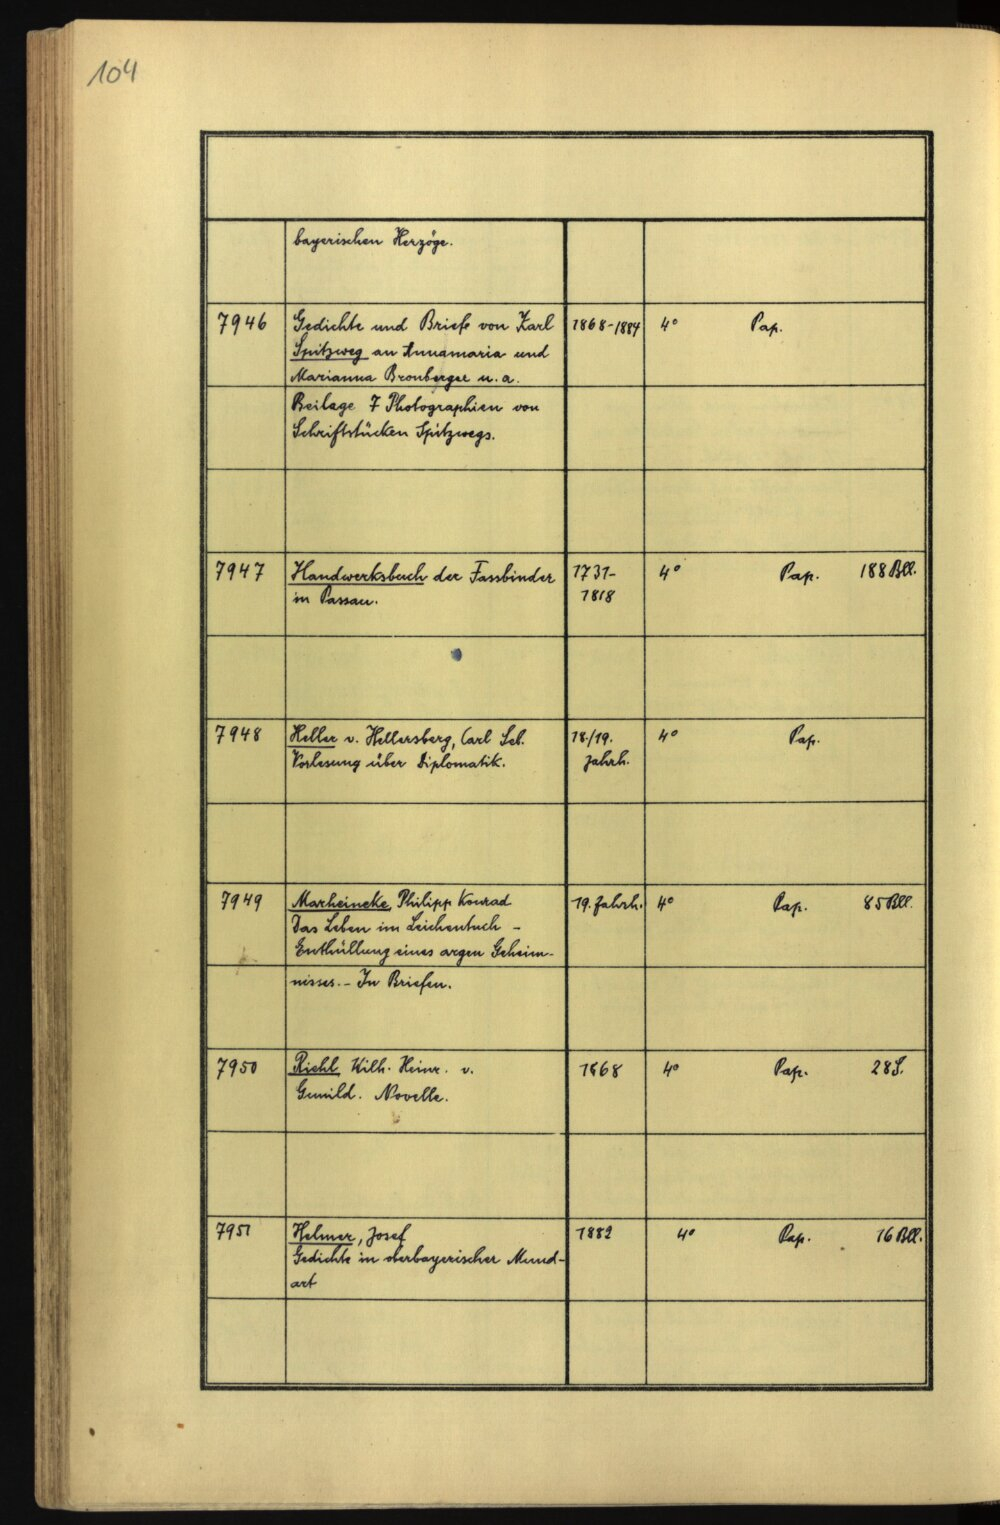 104
bayerischen Herzöge.
7946 Gedichte und Briefe von Karl 1868-1884 4° Pap.
Spitzweg an Annamaria und
Marianna Bronberger u. a.
Beilage 7 Photographien von
Schriftstücken Spitzwegs.
7947 Handwerksbuch der Fassbinder 1731- 4° Pap. 188 Bll.
in Passau. 1818
7948 Heller v. Hellersberg, Carl Seb. 18./19. 4° Pap.
Vorlesung über Diplomatik. Jahrh.
7949 Marheineke, Philipp Konrad 19. Jahrh. 4° Pap. 85 Bll.
Das Leben im Leichentuch -
Enthüllung eines argen Geheim-
nisses. - In Briefen.
7950 Riehl, Wilh. Heinr. v. 1868 4° Pap. 28 S.
Gunild. Novelle.
7951 Helmer, Josef 1882 4° Pap. 16 Bll.
Gedichte in oberbayerischer Mund-
art